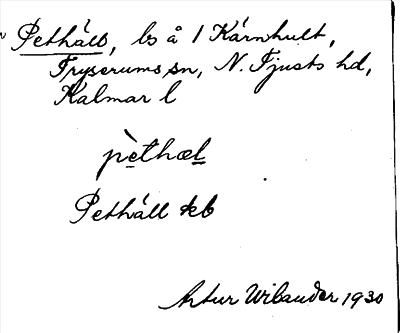 Pethäll, ls å 1 Kärnhult,
Tryserums sn, N. Tjusts hd,
Kalmar l
pèthæl
Pethäll ekb
Artur Wibander 1930